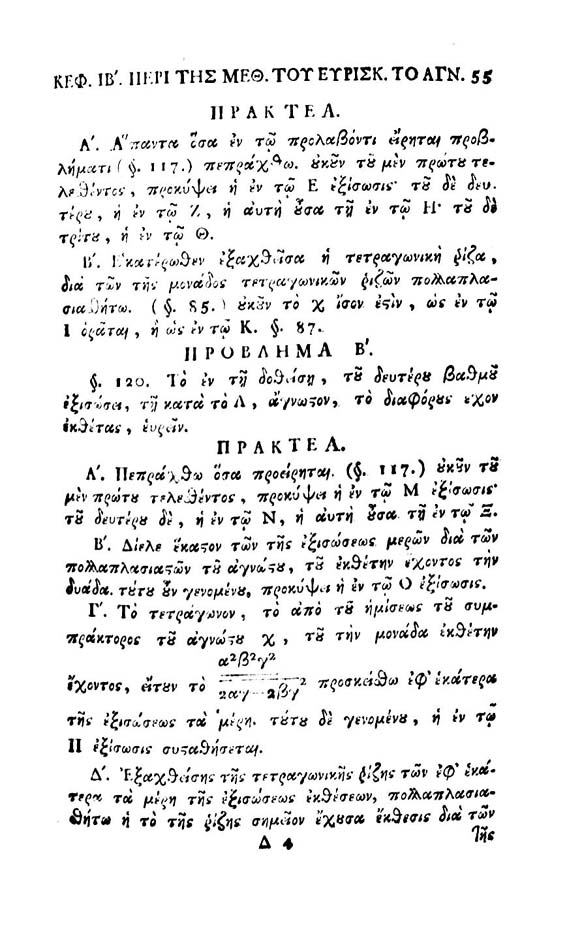 ΚΕΦ. ΙΒ΄. ΠΕΡΙ ΤΗΣ ΜΕΘ. ΤΟΥ ΕΥΡΙΣΚ. ΤΟ ΑΓΝ. 55
ΠΡΑΚΤΕΛ.
Α΄. Ἅπαντα ὅσα ἐν τῷ προλαβόντι εἴρηται προβ-
λήματι (§. 117.) πεπράχθω. ὐκῦν τῦ μὲν πρώτυ τε-
λεθέντος, προκύψει ἡ ἐν τῷ Ε ἐξίσωσις· τῦ δὲ δευ-
τέρυ, ἡ ἐν τῷ Ζ, ἡ αὐτὴ ὖσα τῇ ἐν τῷ Η· τῦ δὲ
τρίτυ, ἡ ἐν τῷ Θ.
Β΄. Ἑκατέρωθεν ἐξαχθεῖσα ἡ τετραγωνικὴ ῥίζα,
διὰ τῶν τῆς μονάδος τετραγωνικῶν ῥιζῶν πολλαπλα-
σιαθήτω. (§. 85.) ὐκῦν τὸ χ ἴσον ἐϛὶν, ὡς ἐν τῷ
Ι ὁρᾶται, ἢ ὡς ἐν τῷ Κ. §. 87.
ΠΡΟΒΛΗΜΑ Β΄.
§. 120. Τὸ ἐν τῇ δοθείσῃ, τῦ δευτέρυ βαθμῦ
ἐξισώσει, τῇ κατὰ τὸ Λ, ἄγνωϛον, τὸ διαφόρυς ἔχον
ἐκθέτας, εὑρεῖν.
ΠΡΑΚΤΕΛ.
Α΄. Πεπράχθω ὅσα προείρηται. (§. 117.) ὐκῦν τῦ
μὲν πρώτυ τελεθέντος, προκύψει ἡ ἐν τῷ Μ ἐξίσωσις·
τῦ δευτέρυ δὲ, ἡ ἐν τῷ Ν, ἡ αὐτὴ ὖσα τῇ ἐν τῷ Ξ.
Β΄. Δίελε ἕκαϛον τῶν τῆς ἐξισώσεως μερῶν διὰ τῶν
πολλαπλασιαϛῶν τῦ ἀγνώϛυ, τῦ ἐκθέτην ἔχοντος τὴν
δυάδα. τύτυ ὖν γενομένυ, προκύψει ἡ ἐν τῷ Ο ἐξίσωσις.
Γ΄. Τὸ τετράγωνον, τὸ ἀπὸ τῦ ἡμίσεως τῦ συμ-
πράκτορος τῦ ἀγνώϛυ χ, τῦ τὴν μονάδα ἐκθέτην
α²β²γ²
ἔχοντος, εἴτυν τὸ 2αγ--2βγ² προσκείθω ἐφ' ἑκάτερα
τῆς ἐξισώσεως τὰ μέρη. τύτυ δὲ γενομένυ, ἡ ἐν τῷ
Π ἐξίσωσις συϛαθήσεται.
Δ΄. Ἐξαχθείσης τῆς τετραγωνικῆς ῥίζης τῶν ἐφ' ἑκά-
τερα τὰ μέρη τῆς ἐξισώσεως ἐκθέσεων, πολλαπλασια-
θήτω ἡ τὸ τῆς ῥίζης σημεῖον ἔχυσα ἔκθεσις διὰ τῶν
Δ 4 τῆς